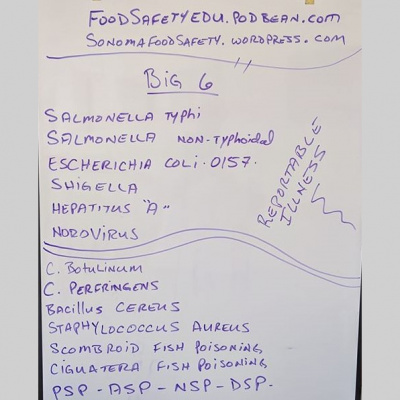 FOODSAFETYEDU.PODBEAN.COM
SONOMAFOODSAFETY.WORDPRESS.COM
BIG 6
SALMONELLA TYPHI
SALMONELLA NON-TYPHOIDAL
ESCHERICHIA COLI.0157.
SHIGELLA
HEPATITUS "A"
NOROVIRUS
REPORTABLE
ILLNESS
C. BOTULINUM
C. PERFRINGENS
BACILLUS CEREUS
STAPHYLOCOCCUS AUREUS
SCOMBROID FISH POISONING
CIGUATERA FISH POISONING
PSP - ASP - NSP - DSP -